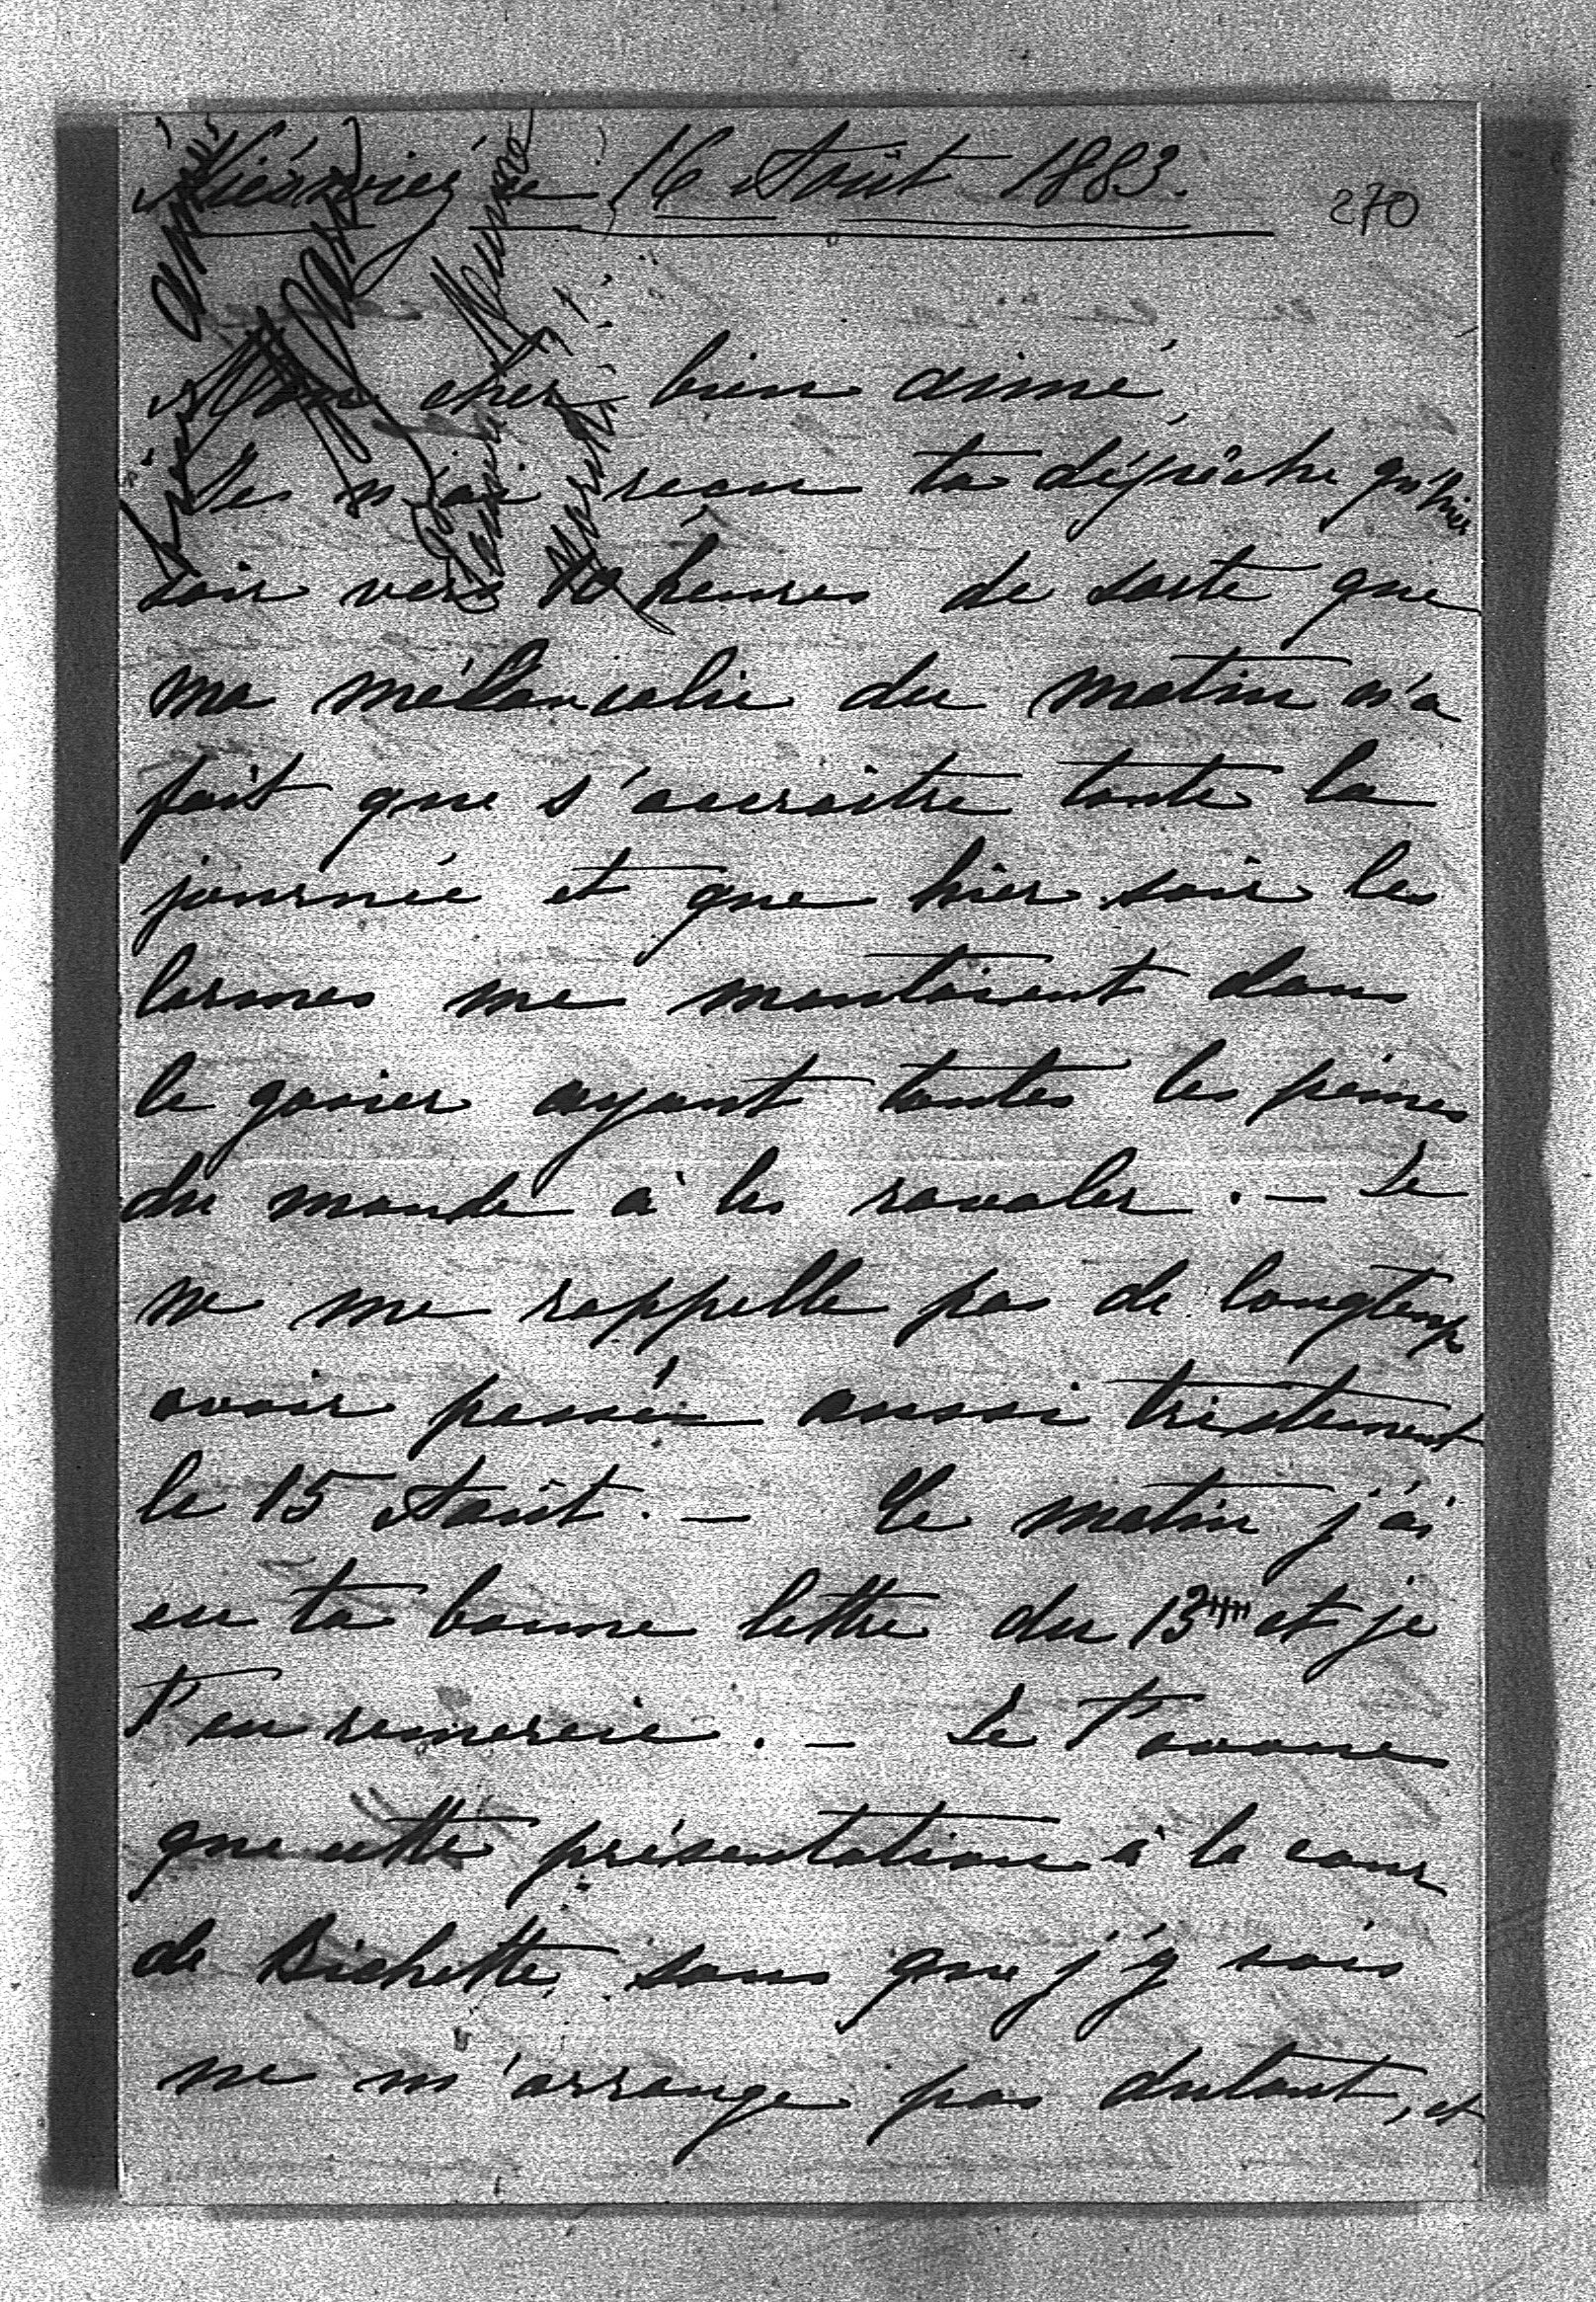 Nieśwież le 16 Août 1883.
270
Mon cher bien aimé,
Je n'ai recu ta dépêche qu'hier
soir vers 10 heures de sorte que
ma mélancolie du matin n'a
fait que s'accroitre toute la
journée et que hier soir les
larmes me montaient dans
le gosier ayant toutes les peines
du monde à les ravaler. — Je
ne me rappelle pas de longtemps
avoir passée aussi tristement
le 15 Août. — Le matin j'ai
eu ta bonne lettre du 13 et je
t'en remercie. — Je t'avoue
que cette présentation à la cour
de Bichette sans que j'y sois
ne m'arrange pas dutout, et